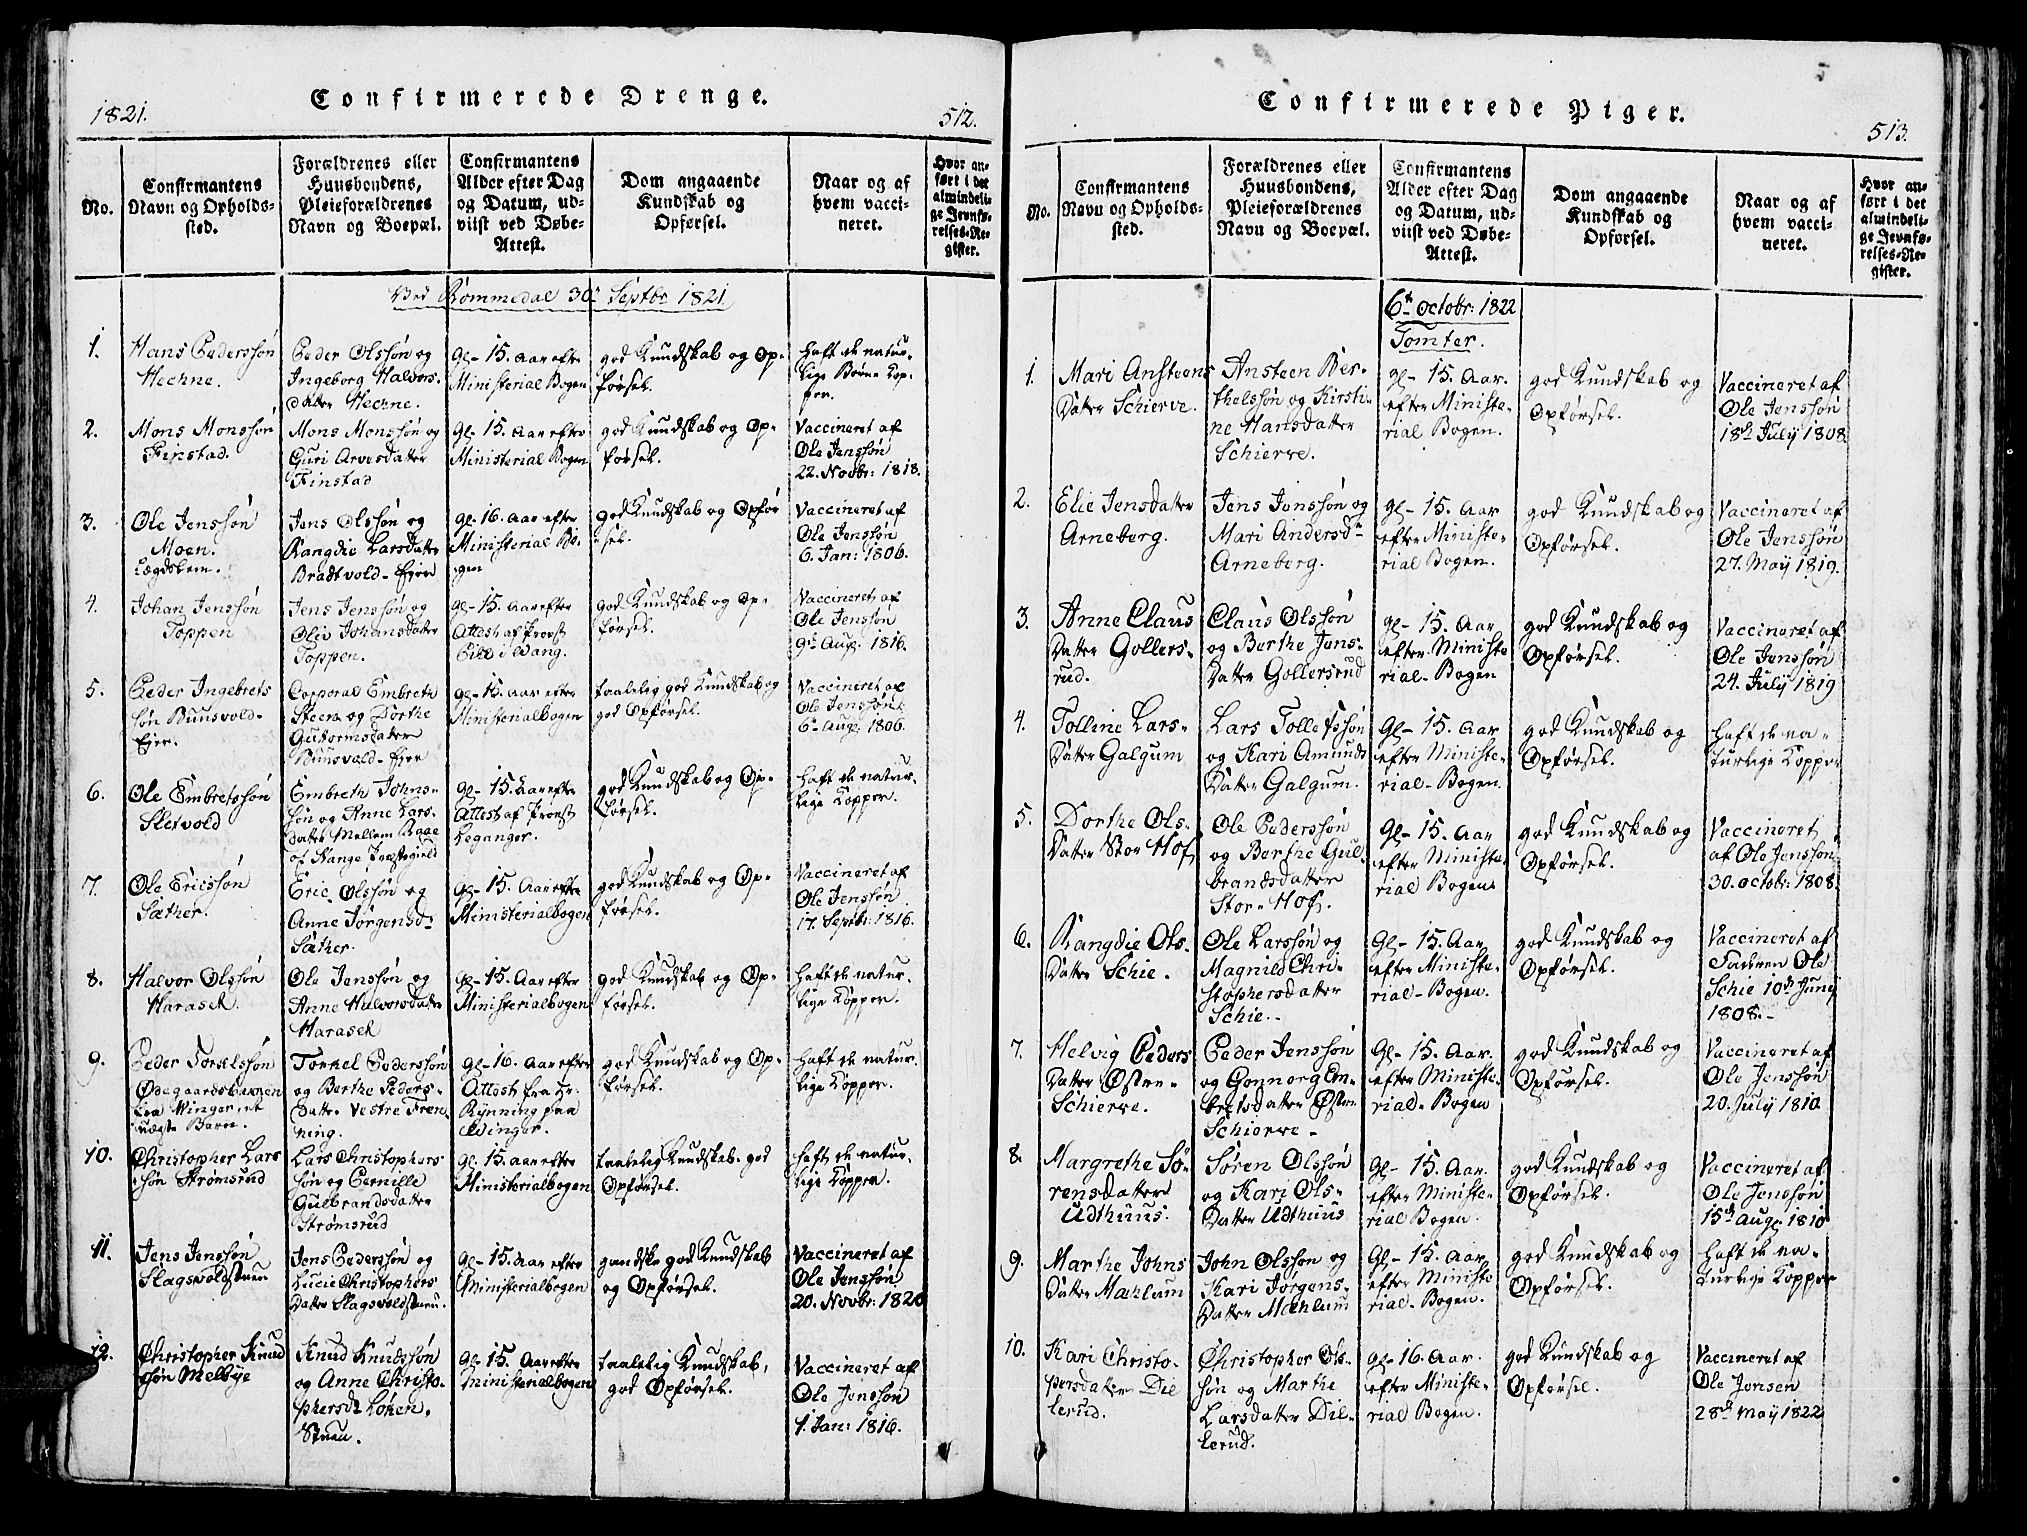 1821.
Confirmerede Drenge.
512.
No.
Confirmantens
Navn og Opholds-
sted.
Forældrenes eller
Huusbondens,
Pleieforældrenes
Navn og Boepæl.
Confirmantens
Alder efter Dag
og Datum, ud-
viist ved Døbe-
Attest.
Dom angaaende
Kundskab og
Opførsel.
Naar og af
hvem vacci-
neret.
Hvor an-
ført i det
almindeli-
ge Jevnfø-
relses-Re-
gister.
Ved Rommedal 30te Septbr 1821
1.
Hans Pedersøn
Hechne.
Peder Olssøn og
Ingeborg Halvors-
datter Hechne.
gl- 15. Aar efter
Ministerial Bogen
god Kundskab og Op-
førsel.
haft de natur-
lige Børne Kop-
per.
2.
Mons Monssøn
Finstad.
Mons Monssøn og
Guri Arvesdatter
Finstad
gl- 15. Aar efter
Ministerial Bogen
god Kundskab og Op-
førsel.
Vaccineret af
Ole Jenssøn
22. Novbr: 1818.
3.
Ole Jenssøn
Moen.
Lægdslem.
Jens Olssøn og
Rangdie Larsdatter
Bradtvold-Ejer
gl- 16. Aar efter
Ministerial Bo-
gen
god Kundskab og Opfør
sel.
Vaccineret af
Ole Jenssøn
6. Jan: 1806.
4.
Johan Jenssøn
Toppen
Jens Jenssøn og
Olie Johansdatter
Toppen.
gl- 15. Aar efter
Attest af Provst
Pihl i Vang.
god Kundskab og Op-
førsel.
Vaccineret af
Ole Jenssøn
9de Aug. 1816.
5.
Peder Ingebrets
søn Bunsvold-
Ejer.
Corporal Embreth
Steen og Dorthe
Gutormsdatter
Bunsvold-Ejer
gl- 15. Aar efter
Ministerialbogen
taalelig god Kundskab og
god Opførsel.
Vaccineret af
Ole Jenssøn
6te Aug. 1806.
6.
Ole Embretssøn
Sletvold
Embreth Johns-
søn og Anne Lars-
datter Mellem Raae
af Stange Præstegield
gl- 15. Aar efter
Attest af Provst
Leganger.
god Kundskab og Op-
førsel.
haft de natur-
lige Kopper.
7.
Ole Ericssøn
Sæther.
Eric Olssøn og
Anne Jørgensd-
Sæther.
gl- 15. Aar efter
Ministerialbogen
god Kundskab og Op-
førsel.
Vaccineret af
Ole Jenssøn
17. Septbr: 1816.
8.
Halvor Olssøn
Harasek.
Ole Jenssøn og
Anne Halvorsdatter
Harasek
gl- 15. Aar efter
Ministerialbogen
god Kundskab og Op-
førsel.
haft de natur-
lige Kopper.
9.
Peder Torkelssøn
Ødegaardsbakken
fra Vinger, et
uægte Barn.
Torkel Pederssøn
og Berthe Peders-
datter Vestre Fren
ning.
gl- 16. Aar efter
Attest fra Hr.
Rynning paa
Vinger.
god Kundskab og Op-
førsel.
haft de natur-
lige Kopper.
10.
Christopher Lars
søn Strømsrud
Lars Christophers
søn og Pernille
Gulbrandsdatter
Strømsrud
gl- 15. Aar efter
Ministerialbogen
taalelig Kundskab. god
Opførsel.
haft de natur-
lige Kopper.
11.
Jens Jenssøn
Slagsvoldstuen
Jens Pederssøn og
Lucie Christophers
datter Slagsvoldstuen.
gl- 15. Aar efter
Ministerialbogen
gandske god Kundskab
og Opførsel.
Vaccineret af
Ole Jenssøn
20. Novbr: 1820
12.
Christopher Knud
søn Melbye
Knud Knudssøn
og Anne Christo-
phersdr Løken.
Stuen.
gl- 15. Aar efter
Ministerialbogen
taalelig Kundskab,
god Opførsel.
Vaccineret af
Ole Jenssøn
1. Jan: 1816.
Confirmerede Piger.
513.
No.
Confirmantens
Navn og Opholds-
sted.
Forældrenes eller
Huusbondens,
Pleieforældrenes
Navn og Boepæl.
Confirmantens
Alder efter Dag
og Datum, ud-
viist ved Døbe-
Attest.
Dom angaaende
Kundskab og
Opførsel.
Naar og af
hvem vacci-
neret.
Hvor an-
ført i det
almindeli-
ge Jevnfø-
relses-Re-
gister.
6te octobr: 1822
Tomter.
1.
Mari Ansteens
Datter Schierve.
Ansteen Ber-
thelssøn og Kirsti-
ne Hansdatter
Schierve.
gl- 15. Aar.
efter Ministe-
rial Bogen.
god Kundskab og
Opførsel.
Vaccineret af
Ole Jenssøn
18de July 1808
2.
Elie Jensdatter
Arneberg.
Jens Jenssøn og
Mari Andersdr
Arneberg.
gl- 15. Aar
efter Ministe-
rial Bogen.
god Kundskab og
Opførsel.
Vaccineret af
Ole Jenssøn
27. May 1819.
3.
Anne Claus
Datter Gollers-
rud.
Claus Olssøn
og Berthe Jens-
Datter Gollersrud
gl- 15. Aar
efter Ministe
rial-Bogen
god Kundskab og
Opførsel.
Vaccineret af
Ole Jenssøn
24. July 1819
4.
Tolline Lars-
Datter Galgum
Lars Tollefssøn
og Kari Amunds
Datter Galgum.
gl- 15. Aar
efter Ministe-
rial-Bogen.
god Kundskab og
Opførsel.
haft de na-
turlige Kopper
5.
Dorthe Ols-
Datter Stor Hof
Ole Pederssøn
og Berthe Gul-
brandsdatter
Stor-Hof.
gl- 15. Aar
efter Ministe-
rial Bogen
god Kundskab og
Opførsel.
Vaccineret
af Ole Jenssøn
30. octobr: 1808.
6.
Rangdie Ols-
Datter Schie.
Ole Larssøn og
Magnild Chri-
stophersdatter
Schie.
gl- 15. Aar
efter Ministe-
rial-Bogen.
god Kundskab og
Opførsel.
Vaccineret af
Faderen Ole
Schie 10de Juny
1808.
7.
Helvig Peders
Datter Østre-
Schierve.
Peder Jenssøn
og Gonnorg Em-
bretsdatter Østre
Schierve-
gl- 15. Aar.
efter Ministe-
rial-Bogen
god Kundskab og
Opførsel.
Vaccineret af
Ole Jenssøn
20. July 1810
8.
Margrethe Sø-
rensdatter
Udthuus.
Søren Olssøn
og Kari Ols-
Datter Udthuus
gl- 15. Aar.
efter Ministe-
rial Bogen.
god Kundskab og
Opførsel.
Vaccineret af
Ole Jenssøn
15de Aug. 1810
9.
Marthe Johns
Datter Mæhlum
John Olssøn og
Kari Jørgens-
Datter Mæhlum
gl- 15. Aar.
efter Ministe
rial-Bogen.
god Kundskab og
Opførsel.
haft de na-
turlige Kopper
10.
Kari Christo-
persdatter Dil
lerud.
Christopher Ols-
søn og Marthe
Larsdatter Dil-
lerud.
gl- 16. Aar.
efter Ministe-
rial Bogen.
god Kundskab og
Opførsel.
Vaccineret af
Ole Jensen
28de May 1822